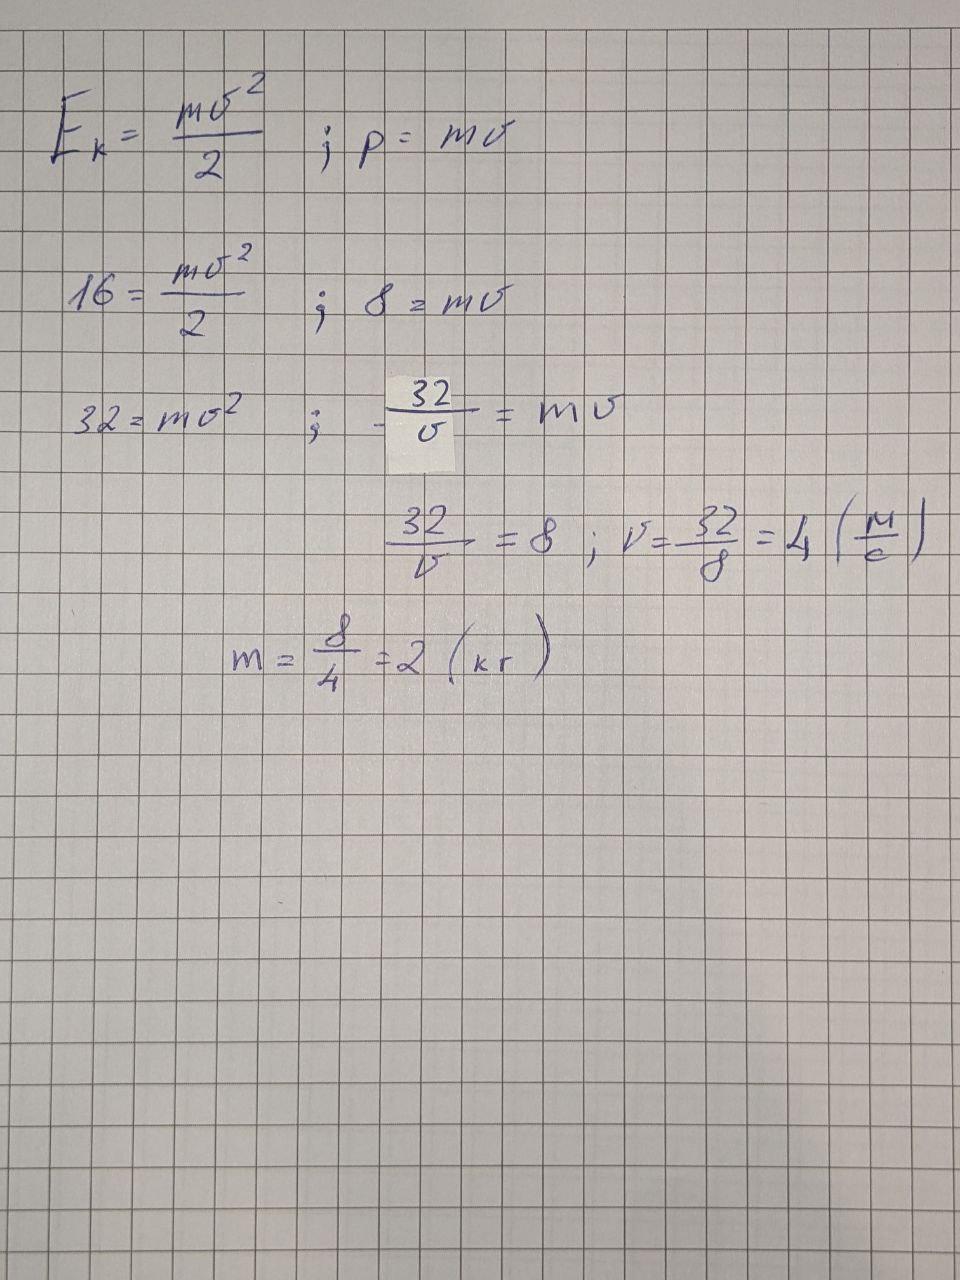 Eк = mv²/2 ; p = mv
16 = mv²/2 ; 8 = mv
32 = mv² ; - 32/v = mv
32/v = 8 ; v = 32/8 = 4 (м/с)
m = 8/4 = 2 (кг)